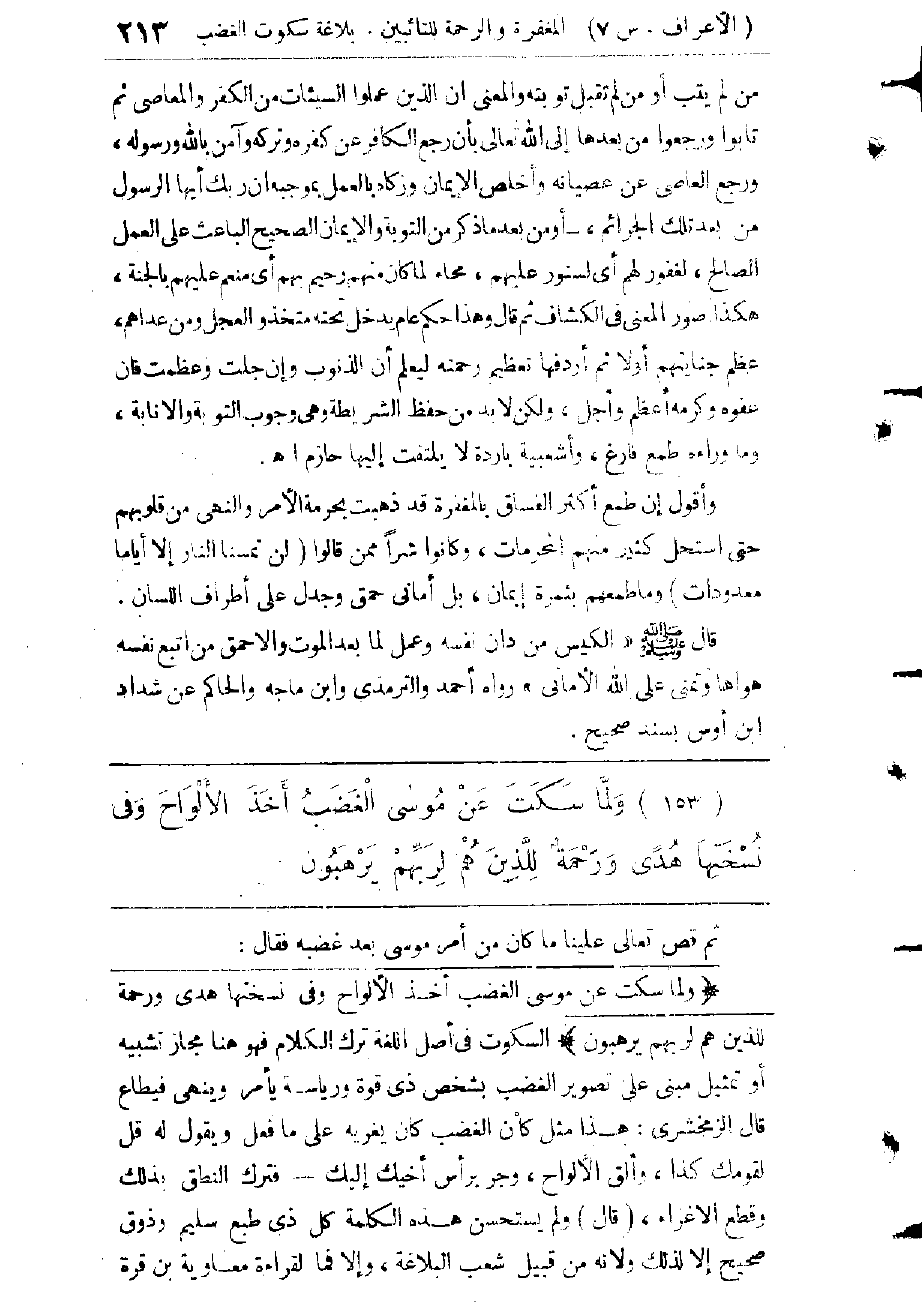 ( الأعراف . س ٧) المغفرة والرحمة للتائبين . بلاغة سكوت الغضب ٢١٣
من لم يتب أو من لم تقبل توبته والمعنى ان الذين عملوا السيئات من الكفر والمعاصى ثم
تابوا ورجعوا من بعدها إلى الله تعالى بأن رجع الكافر عن كفره وتركه وآمن بالله ورسوله ،
ورجع العاصى عن عصيانه وأخلص الإيمان وزكاه بالعمل بموجبه ان ربك أيها الرسول
من بعد تلك الجرائم ، ــ أو من بعد ما ذكر من التوبة والإيمان الصحيح الباعث على العمل
الصالح ، لغفور لهم أى لستور عليهم ، محاء لما كان منهم رحيم بهم أى منعم عليهم بالجنة ،
هكذا صور المعنى فى الكشاف ثم قال وهذا حكم عام يدخل تحته متخذو العجل ومن عداهم،
عظم جنايتهم أولا ثم أردفها تعظيم رحمته ليعلم أن الذنوب وإن جلت وعظمت فان
عفوه وكرمه أعظم وأجل ، ولكن لا بد من حفظ الشريطة وهى وجوب التوبة والانابة ،
وما وراءه طمع فارغ ، وأشعبية باردة لا يلتفت إليها حازم ا هـ .
وأقول إن طمع أكثر الفساق بالمغفرة قد ذهبت بحرمة الأمر والنهى من قلوبهم
حتى استحل كثير منهم المحرمات ، وكانوا شراً ممن قالوا ( لن تمسنا النار إلا أياما
معدودات ) وما طمعهم بثمرة إيمان ، بل أمانى حمق وجدل على أطراف اللسان .
قال ﷺ « الكيس من دان نفسه وعمل لما بعد الموت والاحمق من اتبع نفسه
هواها وتمنى على الله الأمانى » رواه أحمد والترمذى وابن ماجه والحاكم عن شداد
ابن أوس بسند صحيح .
( ١٥٣ ) وَلَمَّا سَكَتَ عَنْ مُوسَى الْغَضَبُ أَخَذَ الأَلْوَاحَ وَفِى
نُسْخَتِهَا هُدًى وَرَحْمَةٌ لِلَّذِينَ هُمْ لِرَبِّهِمْ يَرْهَبُون
ثم قص تعالى علينا ما كان من أمر موسى بعد غضبه فقال :
﴿ ولما سكت عن موسى الغضب أخذ الألواح وفى نسختها هدى ورحمة
للذين هم لربهم يرهبون ﴾ السكوت فى أصل اللغة ترك الكلام فهو هنا مجاز تشبيه
أو تمثيل مبنى على تصوير الغضب بشخص ذى قوة ورياسة يأمر وينهى فيطاع
قال الزمخشرى : هذا مثل كأن الغضب كان يغريه على ما فعل ويقول له قل
لقومك كذا ، وألق الألواح ، وجر برأس أخيك إليك — فترك النطق بذلك
وقطع الاغراء ، ( قال ) ولم يستحسن هذه الكلمة كل ذى طبع سليم وذوق
صحيح إلا لذلك ولانه من قبيل شعب البلاغة ، وإلا فما لقراءة معاوية بن قرة